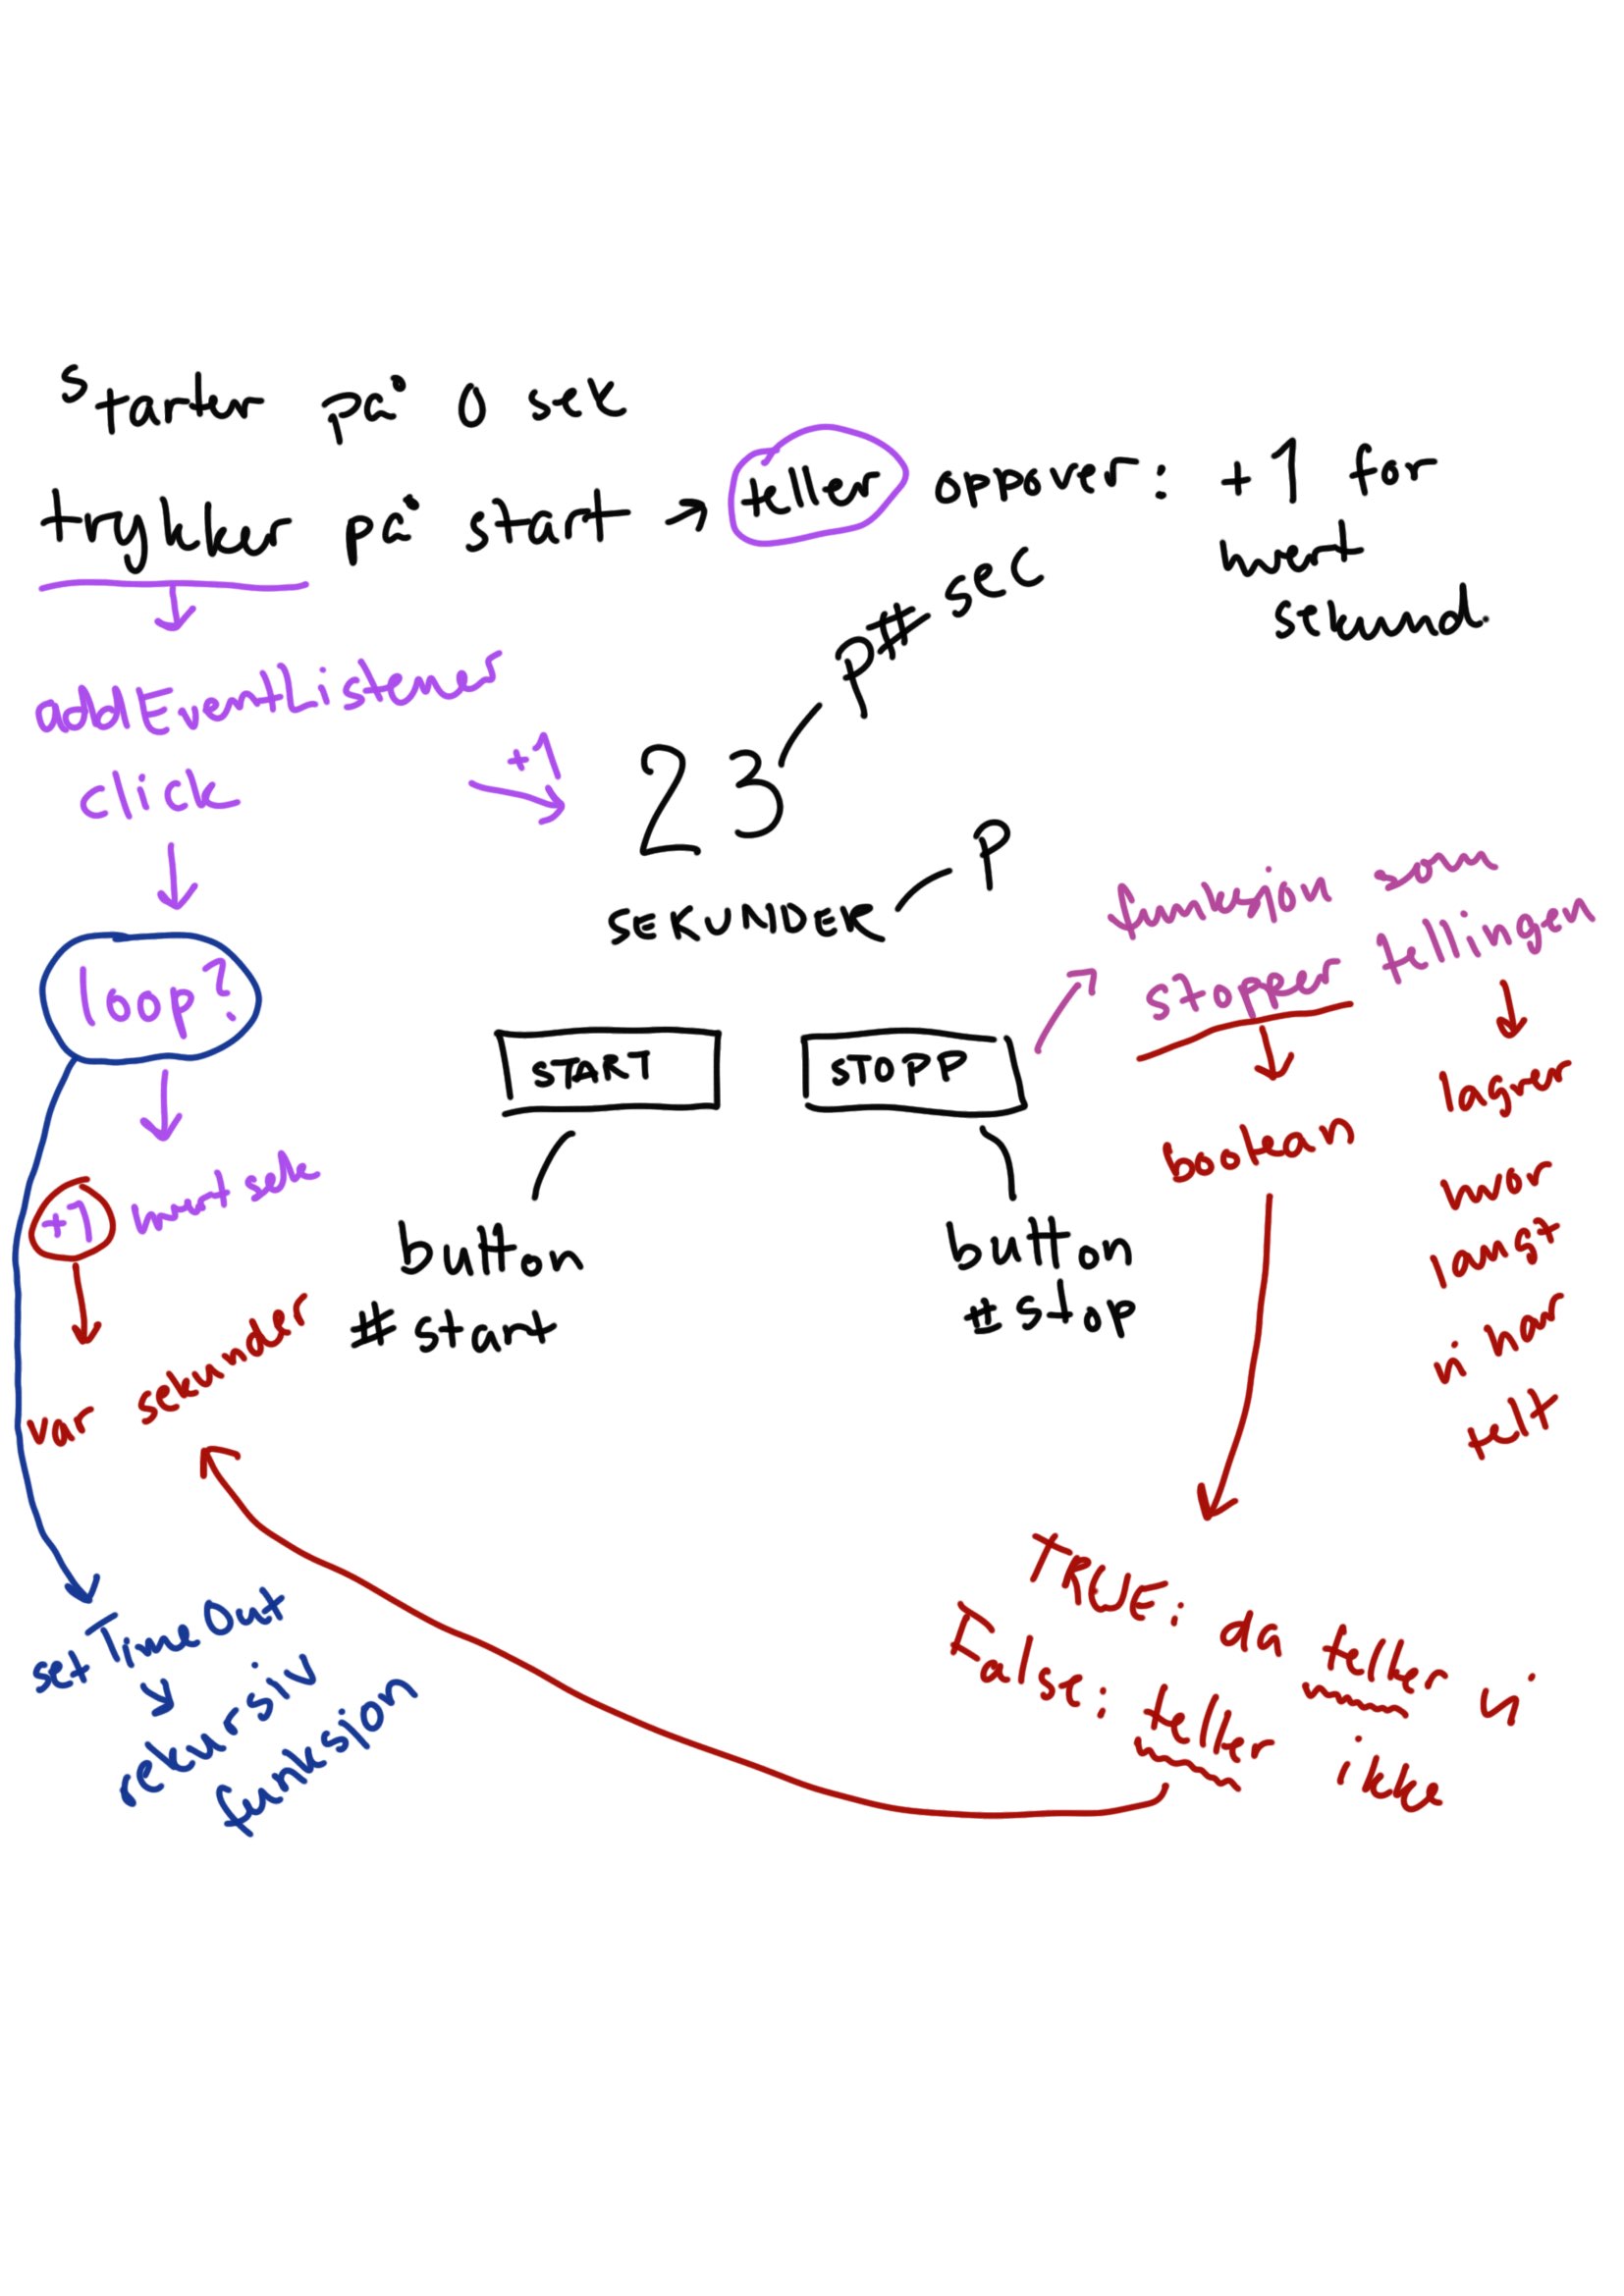 Starter på 0 sek
trykker på start → teller oppover: +1 for
hvert
sekund.
addEventListener
click
loop?
+1 hvert sek
var sekunder
setTimeOut
rekursiv
funksjon
+1
23
p# sec
SEKUNDER
p
START
STOPP
button
#start
button
#stop
funksjon som
stopper tellingen
boolean
lagrer
hvor
langt
vi har
telt
TRUE: da teller vi
False: teller ikke